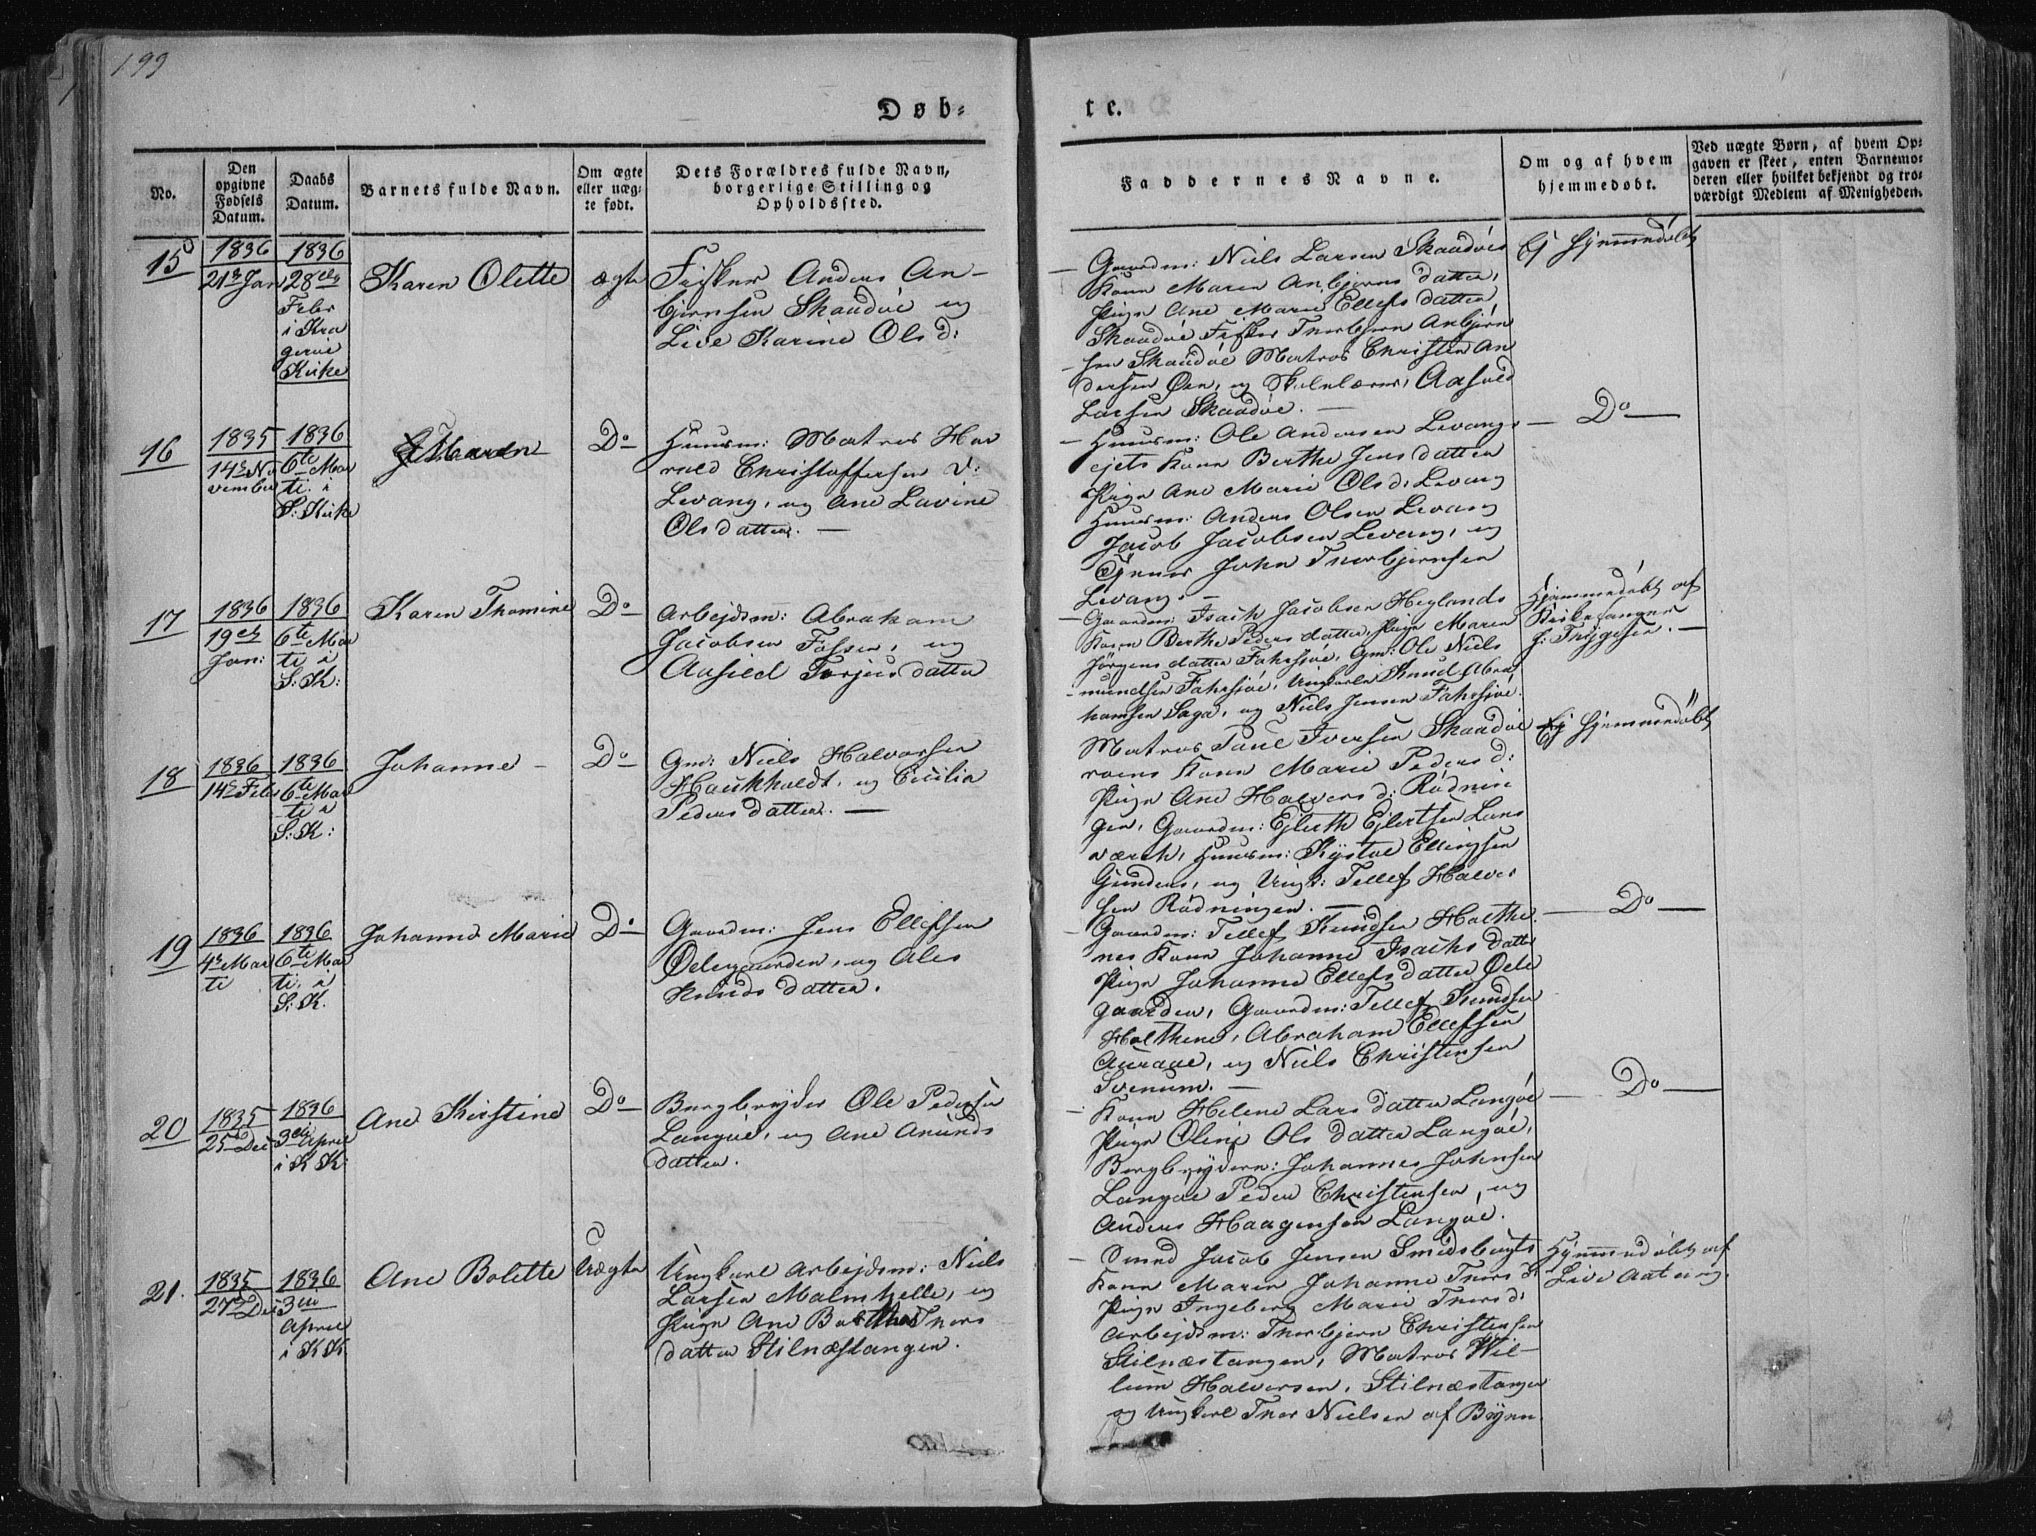 199
Døb-
te.
No.
Den opgivne Fødsels Datum.
Daabs Datum.
Barnets fulde Navn.
Om ægte eller uægte født.
Dets Forældres fulde Navn, borgerlige Stilling og Opholdssted.
Faddernes Navne.
Om og af hvem hjemmedøbt.
Ved uægte Børn, af hvem Opgaven er skeet, enten Barnemoderen eller hvilket bekjendt og troværdigt Medlem af Menigheden.
15
1836
21de Jan
1836
28de
Febr
i Kra
gerøe
Kirke
Karen Olette
ægte
Fisker Anders An-
bjørnsen Skaadøe og
Live Karine Olsd:
Gaardm: Niels Larsen Skaadøes
Kone Maren Anbjørns datter,
Pige Ane Marie Ellefs datter
Skaadøe Fisker Thorbjørn Anbjørn
sen Skaadøe Matros Christen An
dersen Øen, og Skolelærer, Aasold
Larsen Skaadøe. —
Ej Hjemmedøbt
16
1835
14de No
vember
1836
6te Mar
ti. i
S: Kirke
Maren
Do
Huusm: Matros Har
rald Christoffersen
Levang, og Ane Lavine
Olsdatter. —
Huusm: Ole Andersen Levangs
ejets Kone Berthe Jens datter
Pige Ane Marie Olsd: Levang
Huusm: Anders Olsen Levang
Jacob Jacobsen Levang, og
Tjener John Thorbjørnsen
Levang. —
— Do —
17
1836
19de
Jan:
1836
6te Mar
ti i
S: K:
Karen Thomine
Do
Arbejdsm: Abraham
Jacobsen Fossen, og
Aasild Torjus datter
Gaardm: Isach Jacobsen Heglands
Kone Berthe Peders datter, Pige Maren
Jørgens datter Fahrsjøe, Gm: Ole Niels
Fahrsjøe, Ungkarle Knud Abra
hamsen Saga, og Niels Jensen Fahrsjøe.
Hjemmedøbt af
Kirkesanger
J: Tryggesen. —
18
1836
14de Febr
1836
6te Mar
ti i
S: K:
Johanne —
Do
Gm: Niels Halvorsen
Haukholdt, og Cicilia
Peders datter. —
Matros Povel Iversen Skaadøe
roens Kone Marie Peders d:
Pige Ane Halvors d: Rødnin
gen, Gaardm: Ejlerth Ejlertsen Lons
værck, Huusm: Kystol Ellingsen
Gunders, og Ungk: Tellef Halvor
sen Rødningen. —
Ej Hjemmedøbt
19
1836
4de Mar
ti
1836
6te Mar
ti. i
S: K.
Johanne Marie
Do
Gaardm: Jens Ellefsen
Ødegaarden, og Ales
Knuds datter.
Gaardm: Tellef Knudsen Holthe
nes Kone Johanne Isachs datter
Pige Johanne Ellefs datter Øde
gaarden, Gaardm: Tellef Knudsen
Holthene, Abraham Ellefsen
Auraae, og Niels Christensen
Svenum. —
— Do —
20
1835
25de Dec
1836
3die April
i K K:
Ane Kirstine
Do
Bergbryder Ole Pedersen
Langøe, og Ane Anunds
datter.
Kone Helene Lars datter Langøe
Pige Oline Ols datter Langøe,
Bergbrydern: Johannes Johnsen
Langøe Peder Christensen, og
Anders Haagensen Langøe.
— Do —
21.
1835
27de Dec
1836
3die
April
i K K.
Ane Bolette
Uægte
Ungkarl Arbejdsm: Niels
Larsen Malmhelle, og
Pige Ane Thors
datter Stilnæstangen.
Smed Jacob Jensen Smedsbugts
Kone Maren Johanne Thors d:
Pige Ingeborg Marie Thors d:
Arbejdsm: Thorbjørn Christensen
Stilnæstangen, Matros Wil-
lum Halvorsen, Stilnæstangen
og Ungkarl Thor Nielsen af Byen.
Hjemmedøbt af
Live